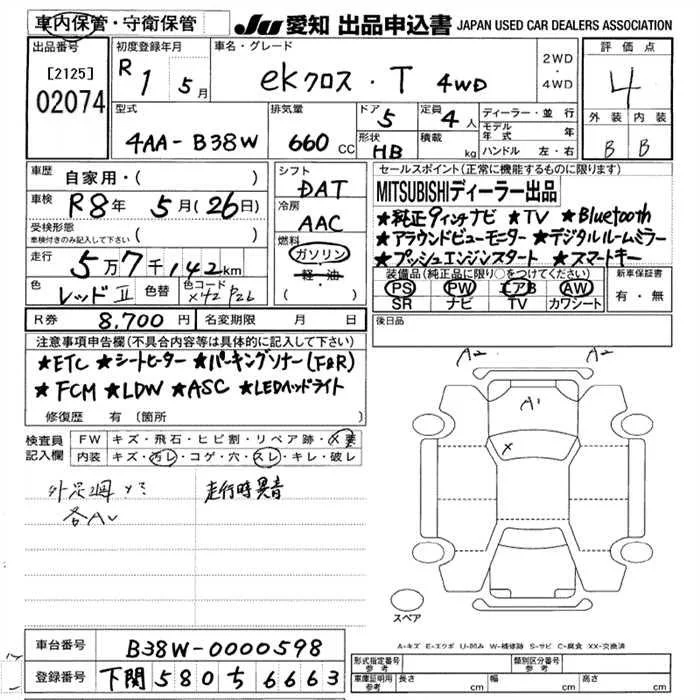 車内保管・守衛保管
JU 愛知 出品申込書 JAPAN USED CAR DEALERS ASSOCIATION
出品番号
[2125]
02074
初度登録年月
R 1 5月
車名・グレード
ekクロス・T 4WD
2WD
・
4WD
評価点
4
型式
4AA-B38W
排気量
660 CC
ドア
5
形状
HB
定員
4人
積載
kg
ディーラー・並行
モデル年式 年
ハンドル 左・右
外装 内装
B B
車歴
自家用・( )
車検
R8年 5月(26日)
受検形態
車検付きのみ記入して下さい ( )
走行
5万7千142km
色
レッドⅡ
色替
色コード
X42 P26
シフト
DAT
冷房
AAC
燃料
ガソリン
・軽・油・
( )
セールスポイント(正常に機能するものに限ります)
MITSUBISHIディーラー出品
★純正9インチナビ ★TV ★Bluetooth
★アラウンドビューモニター ★デジタルルームミラー
★プッシュエンジンスタート ★スマートキー
装備品(純正品に限り○をつけてください)
PS PW エアB AW
SR ナビ TV カワシート
新車保証書
有・無
R券 8,700円
名変期限 月 日
後日品
注意事項申告欄(不具合内容等は具体的に記入して下さい)
★ETC ★シートヒーター ★パーキングソナー(F&R)
★FCM ★LDW ★ASC ★LEDヘッドライト
修復歴 有 (箇所 )
検査員
記入欄
FW キズ・飛石・ヒビ割・リペア跡・X要
内装 キズ・汚レ・コゲ・穴・スレ・キレ・破レ
走行時異音
A2 A2
A1
X
スペア
A=キズ E=エクボ U=凹み W=補修跡 S=サビ C=腐食 XX=交換済
車台番号 B38W-0000598
登録番号 下関 580 ち 6663
形式指定番号
参考
類別区分番号
参考
車庫証明用
参考
長さ cm 幅 cm 高さ cm